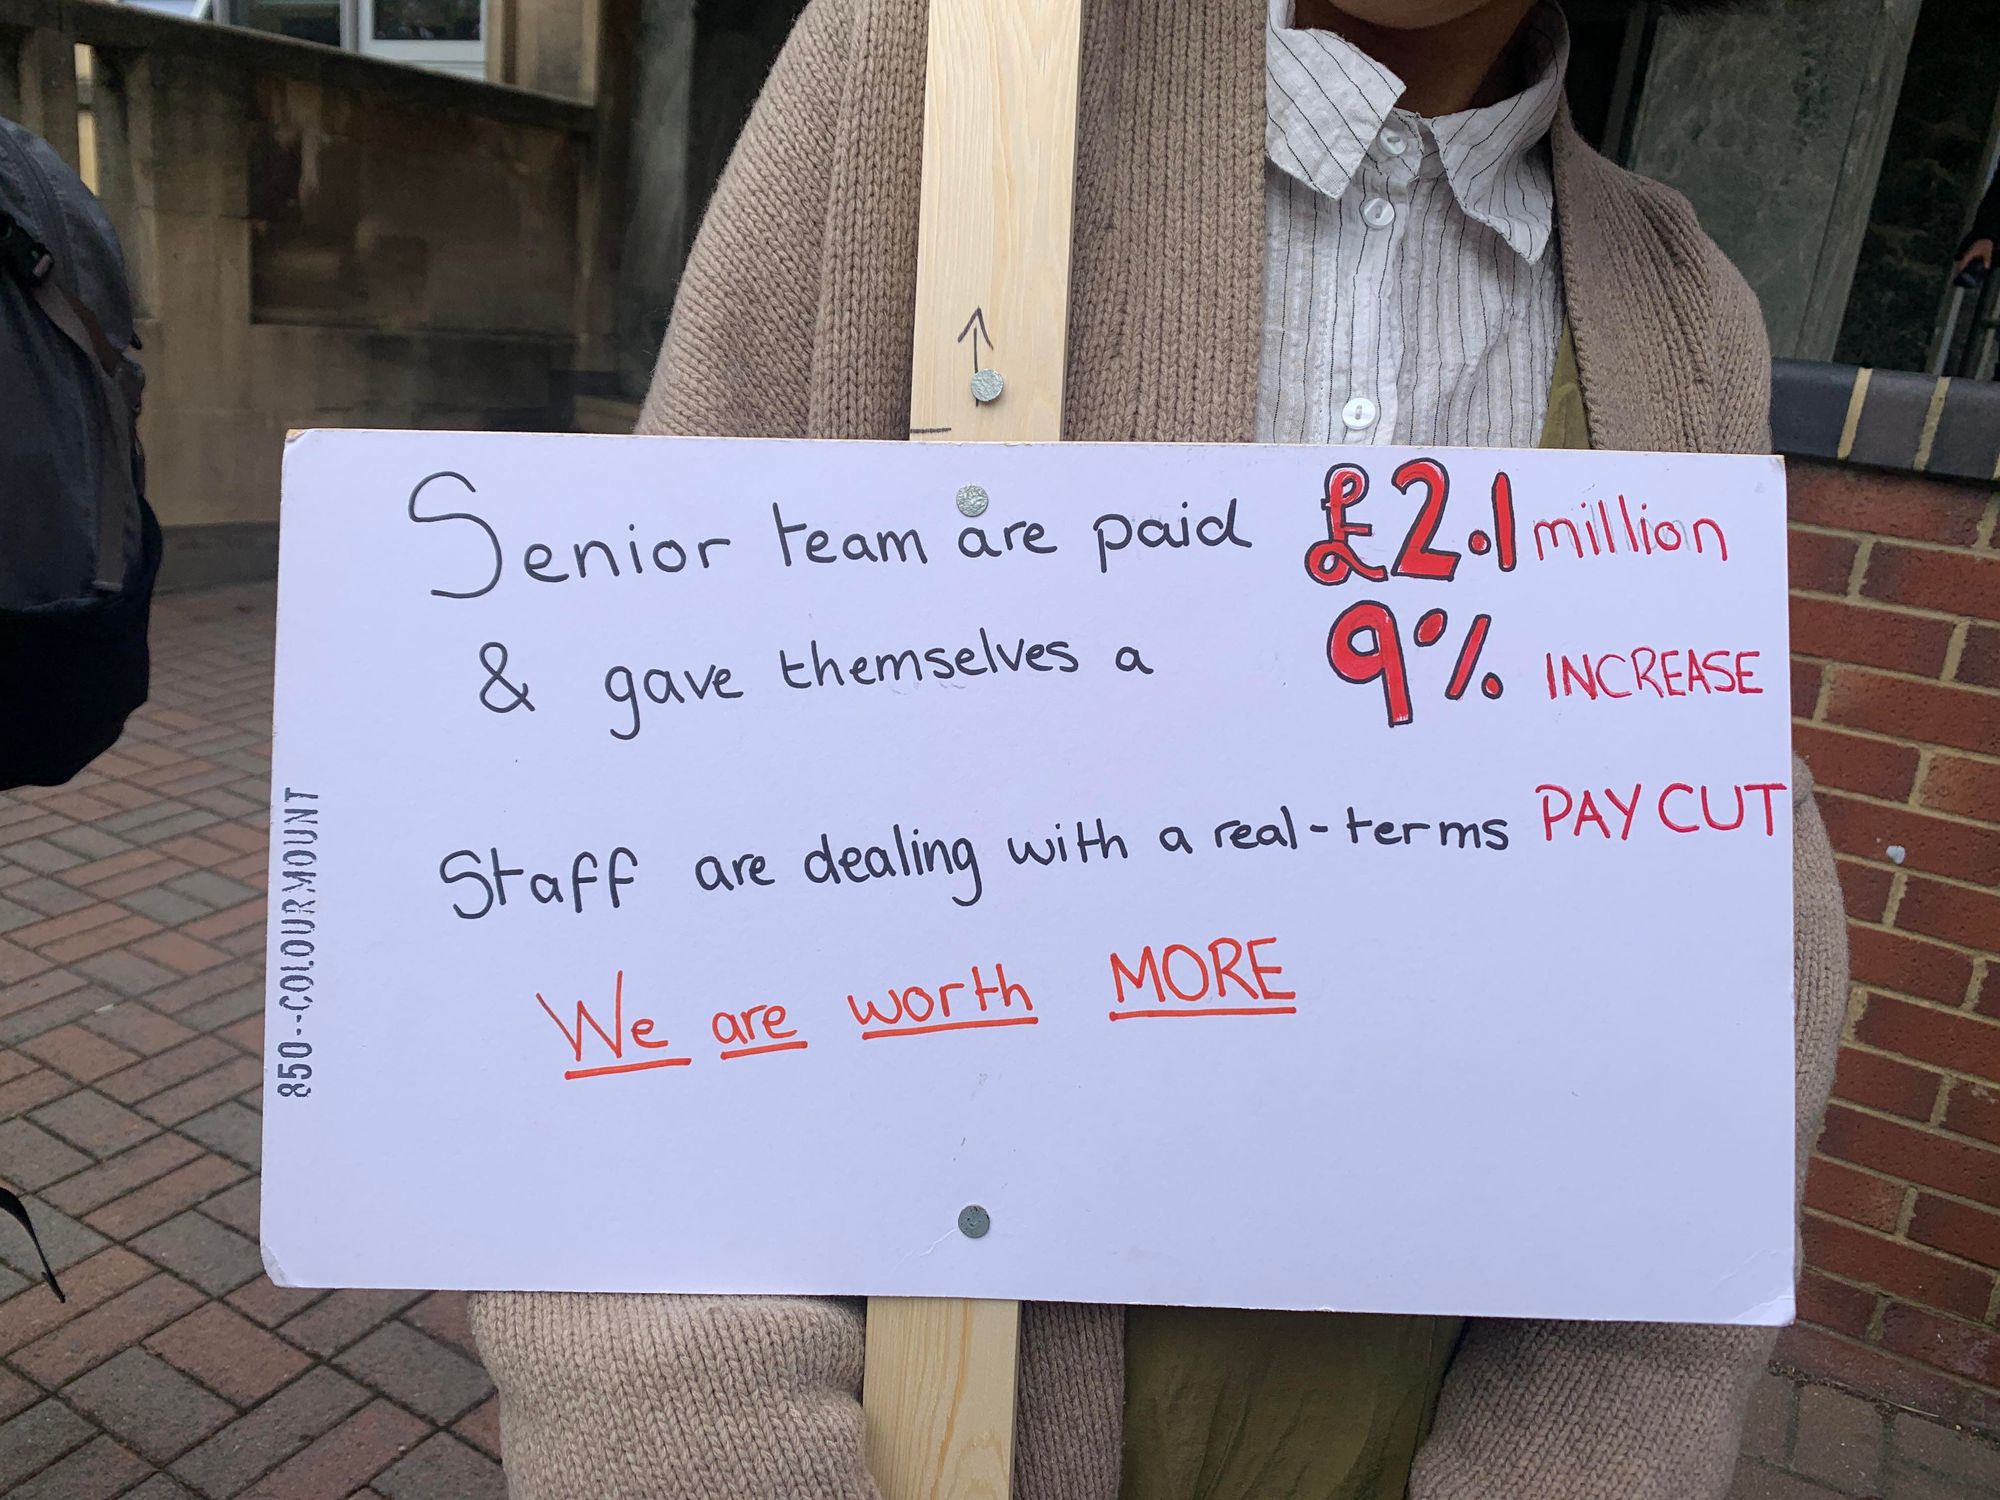 Senior team are paid £2.1 million
& gave themselves a 9% INCREASE
Staff are dealing with a real-terms PAY CUT
We are worth MORE
850--COLOURMOUNT